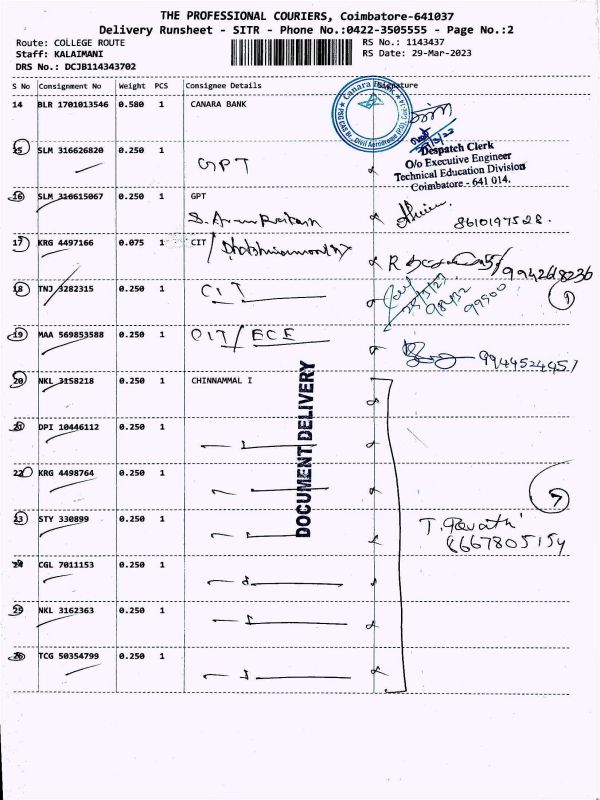 THE PROFESSIONAL COURIERS, Coimbatore-641037
Delivery Runsheet - SITR - Phone No.:0422-3505555 - Page No.:2
Route: COLLEGE ROUTE RS No.: 1143437
Staff: KALAIMANI RS Date: 29-Mar-2023
DRS No.: DCJB114343702
S No Consignment No Weight PCS Consignee Details Signature
14 BLR 1701013546 0.580 1 CANARA BANK
Canara Bank
Despatch Clerk
O/o Executive Engineer
Technical Education Division
Coimbatore - 641 014.
15 SLM 316626820 0.250 1 GPT
16 SLM 316615067 0.250 1 GPT
8610197528.
17 KRG 4497166 0.075 1 CIT/
9942618236
18 TNJ 3282315 0.250 1 CIT
19 MAA 569853588 0.250 1 CIT/ECE
9944524457
20 NKL 3158218 0.250 1 CHINNAMMAL I
DOCUMENT DELIVERY
21 DPI 10446112 0.250 1
22 KRG 4498764 0.250 1
7
23 STY 330899 0.250 1
T. Revathi
8667805154
24 CGL 7011153 0.250 1
25 NKL 3162363 0.250 1
26 TCG 50354799 0.250 1